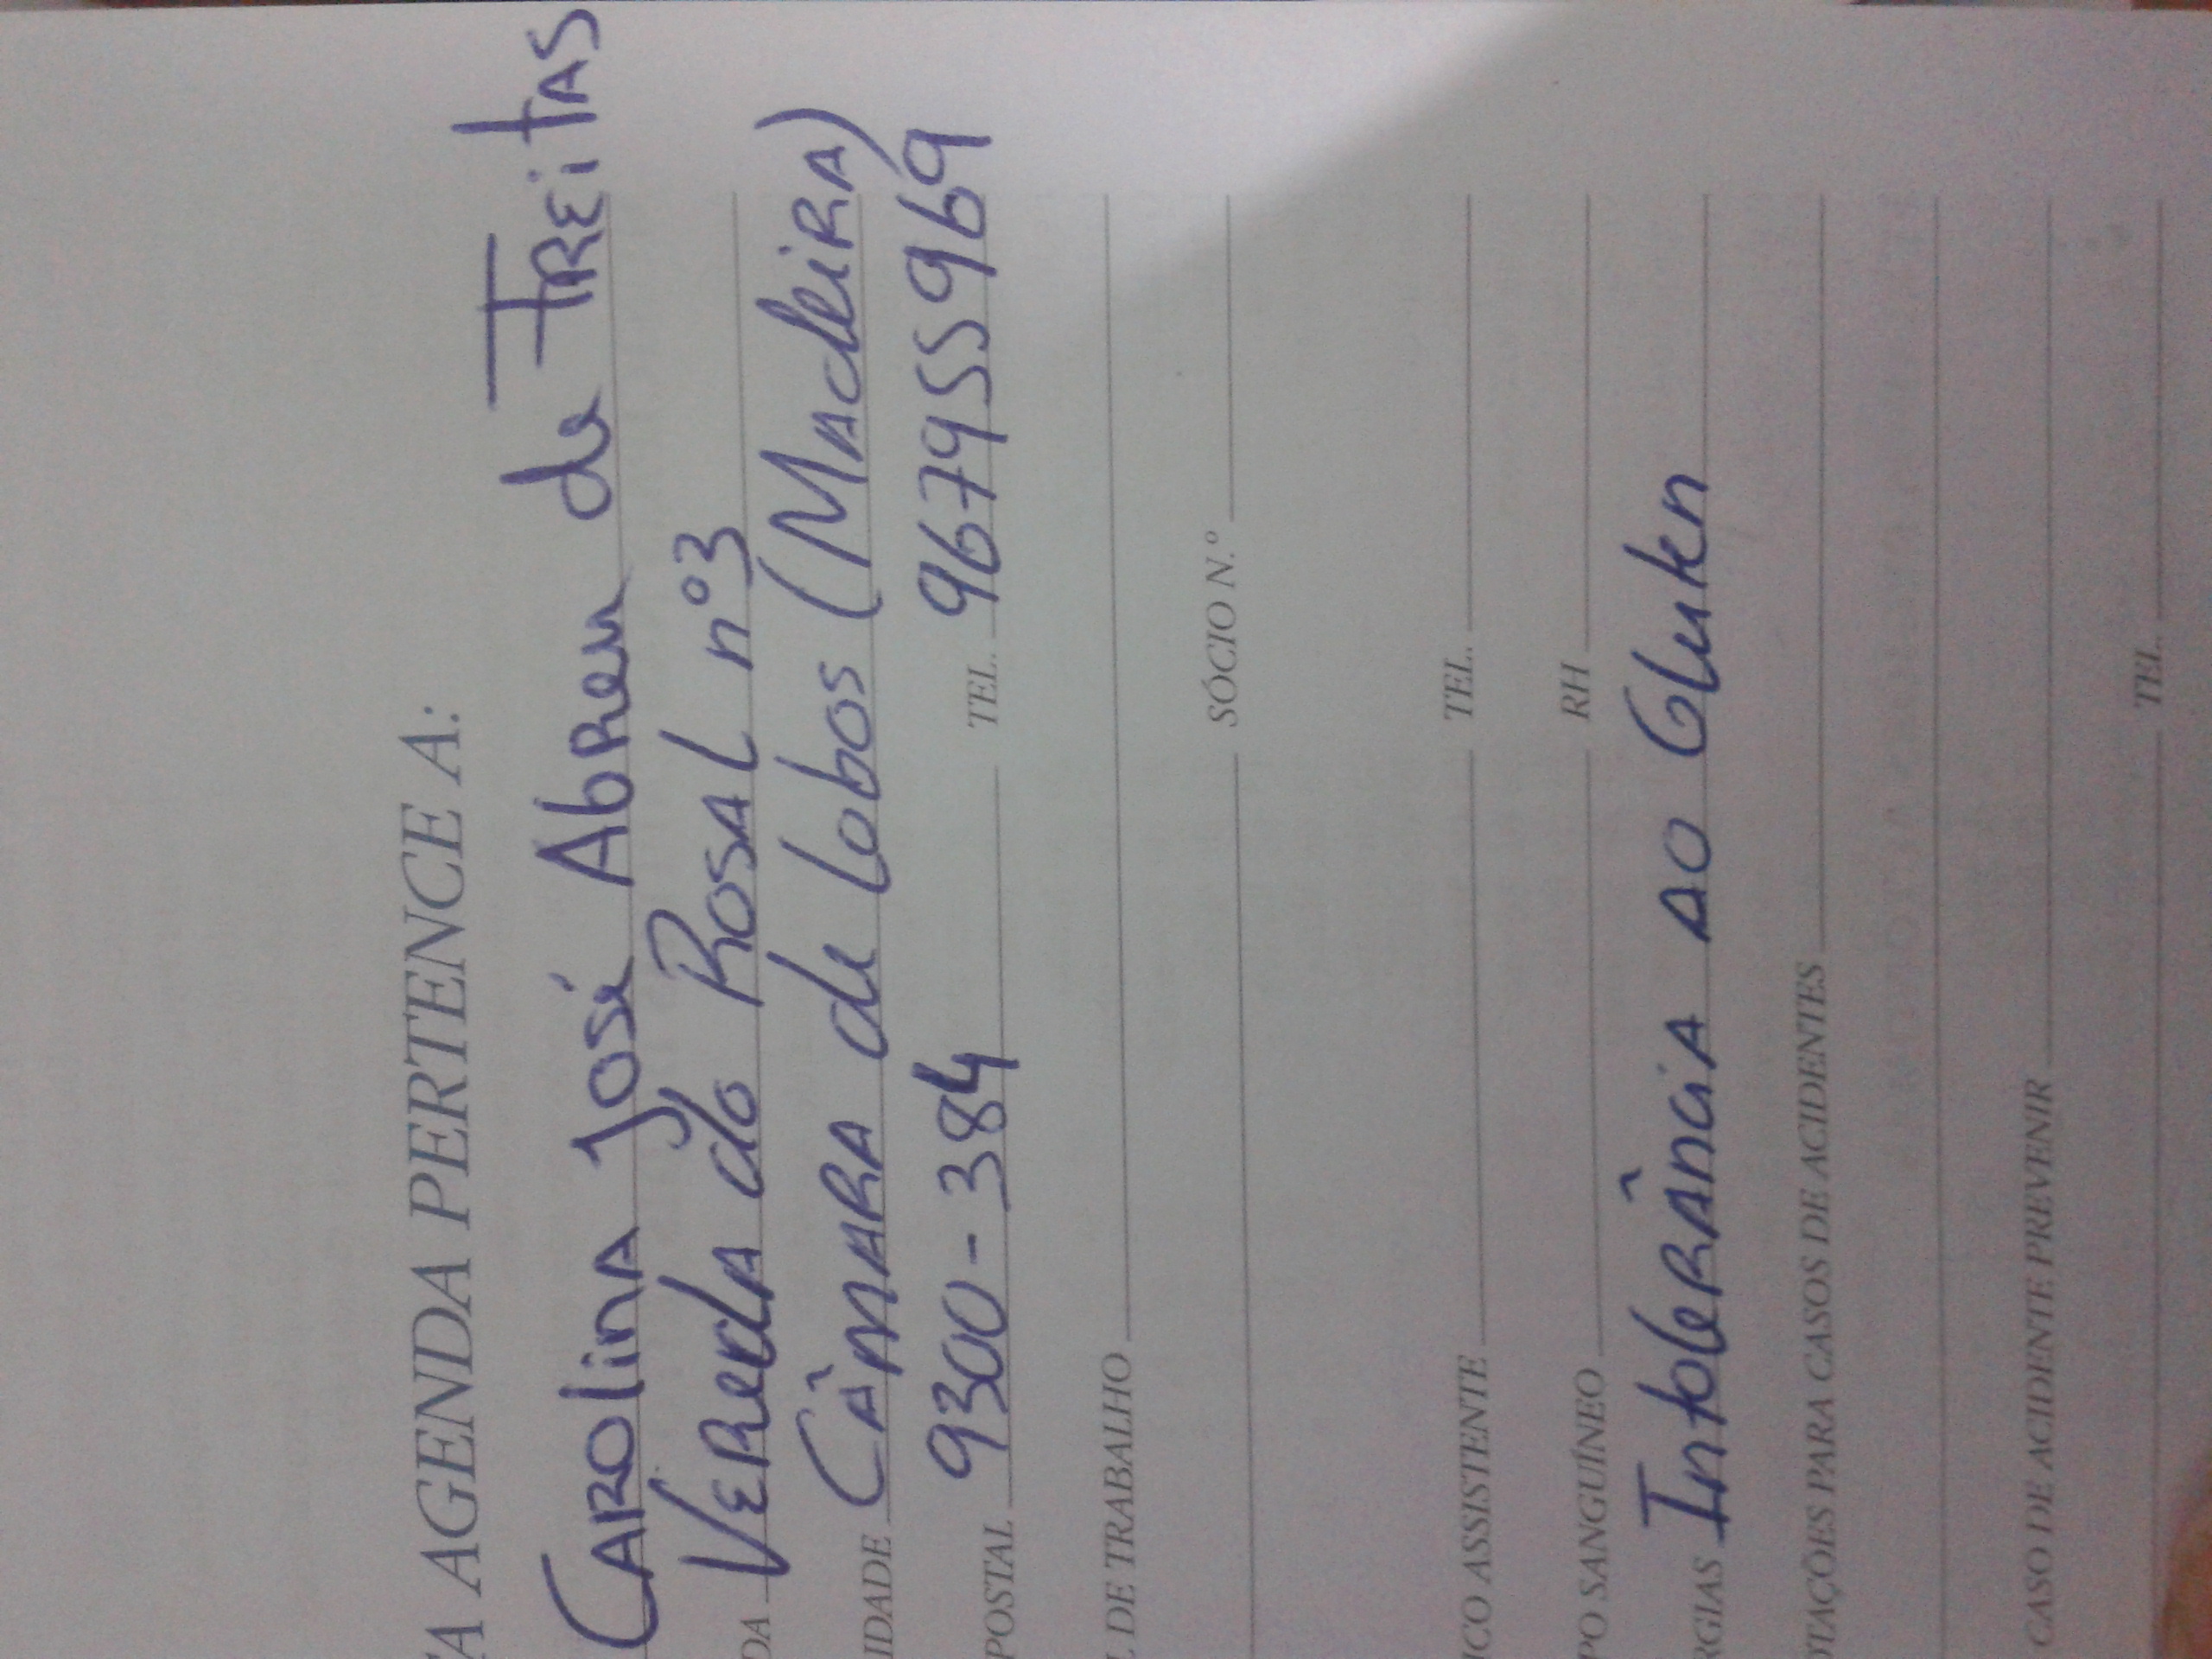 TA AGENDA PERTENCE A:
Carolina José Abreu de Freitas
DA Vereda do Rosal nº3
IDADE Câmara de Lobos (Madeira)
POSTAL 9300-384 TEL. 967955969
L DE TRABALHO
SÓCIO N.º
ICO ASSISTENTE TEL.
PO SANGUÍNEO RH
RGIAS Intolerância ao Gluten
OTAÇÕES PARA CASOS DE ACIDENTES
CASO DE ACIDENTE PREVENIR
TEL.